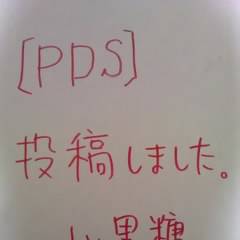 [PDS]
投稿しました。
黒糖